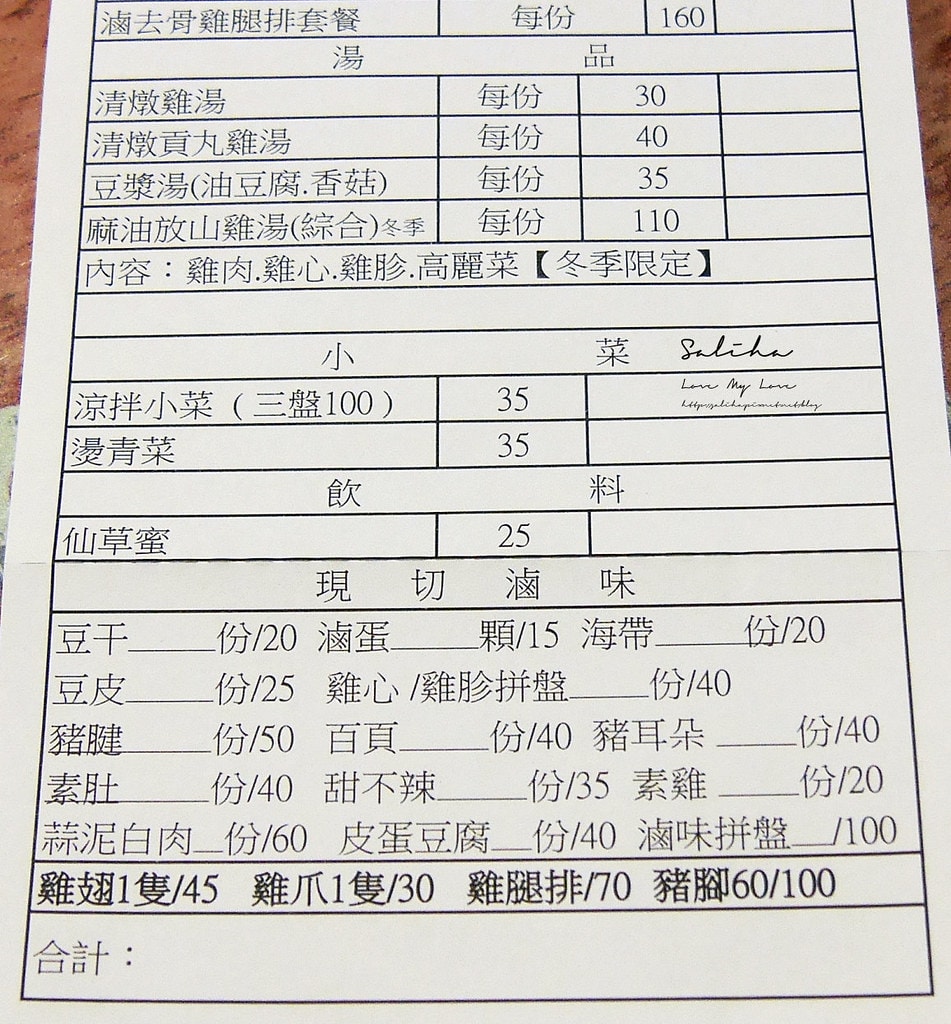 滷去骨雞腿排套餐 每份 160
湯 品
清燉雞湯 每份 30
清燉貢丸雞湯 每份 40
豆漿湯(油豆腐.香菇) 每份 35
麻油放山雞湯(綜合)冬季 每份 110
內容：雞肉.雞心.雞胗.高麗菜【冬季限定】
小 菜
Saliha
Love My Love
涼拌小菜（三盤100） 35
燙青菜 35
飲 料
仙草蜜 25
現 切 滷 味
豆干_____份/20 滷蛋_____顆/15 海帶_____份/20
豆皮_____份/25 雞心 /雞胗拼盤_____份/40
豬腱_____份/50 百頁_____份/40 豬耳朵 _____份/40
素肚_____份/40 甜不辣_____份/35 素雞 _____份/20
蒜泥白肉__份/60 皮蛋豆腐__份/40 滷味拼盤__/100
雞翅1隻/45 雞爪1隻/30 雞腿排/70 豬腳60/100
合計：